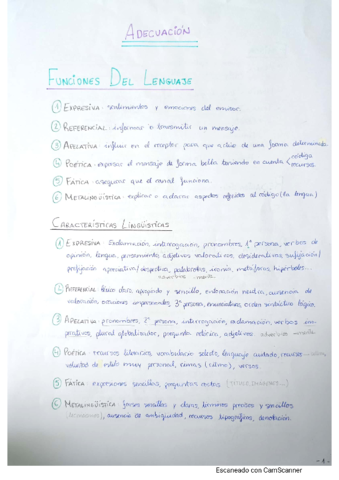 ADECUACIÓN
FUNCIONES DEL LENGUAJE
① EXPRESIVA: sentimientos y emociones del emisor.
② REFERENCIAL: informar o transmitir un mensaje.
③ APELATIVA: influir en el receptor para que actúe de una forma determinada.
④ POÉTICA: expresar el mensaje de forma bella teniendo en cuenta código recursos
⑤ FÁTICA: asegurar que el canal funciona.
⑥ METALINGÜÍSTICA: explicar o aclarar aspectos referidos al código (la lengua)
CARACTERÍSTICAS LINGÜÍSTICAS
① EXPRESIVA: Exclamación, interrogación, pronombres, 1ª persona, verbos de
opinión, lengua, pensamiento, adjetivos valorativos,
ironía, metáforas, hipérboles...
② REFERENCIAL: sencillo, entonación neutra, ausencia de
valoración, oraciones impersonales, 3ª persona, enumerativos, orden sintáctico lógico.
③ APELATIVA: pronombres, 2ª persona, interrogación, exclamación, verbos im-
perativos, plural globalizador, pregunta retórica, adjetivos
④ POÉTICA: recursos literarios, vocabulario selecto, lenguaje cuidado,
voluntad de estilo muy personal, rimas (ritmo), versos.
⑤ FÁTICA: expresiones sencillas, preguntas cortas
⑥ METALINGÜÍSTICA: frases sencillas y claras, términos precisos y sencillos
ausencia de ambigüedad, recursos tipográficos, denotación.
- 1 -
Escaneado con CamScanner